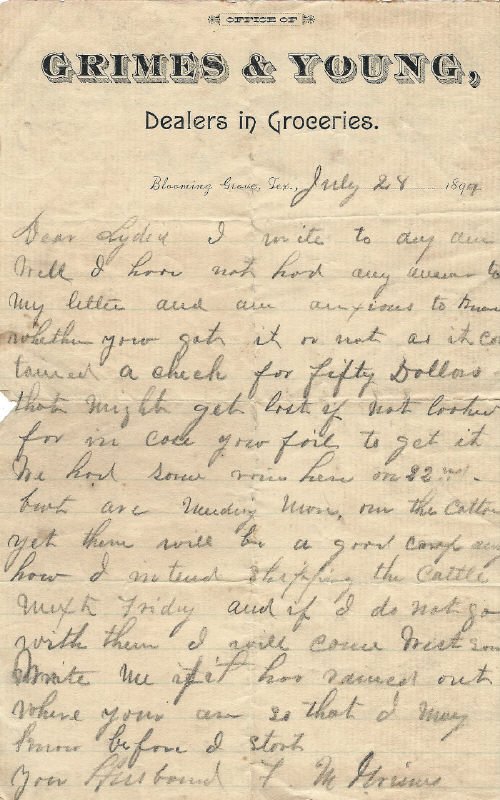 OFFICE OF
GRIMES & YOUNG,
Dealers in Groceries.
Blooming Grove, Tex., July 28 189
Dear Lydia I write to day am
Well I have not had any answer to
my letter and am anxious to know
whether you got it or not as it con
tained a check for fifty Dollars
that might get lost if not looked
for in case you fail to get it
We had some rain here on 22nd
but are needing more, on the cotton
yet there will be a good crop any
how I intend shipping the Cattle
next Friday and if I do not go
with them I will come West soon
Write me if it has rained out
where you are so that I may
know before I start
Your Husband F M Grimes